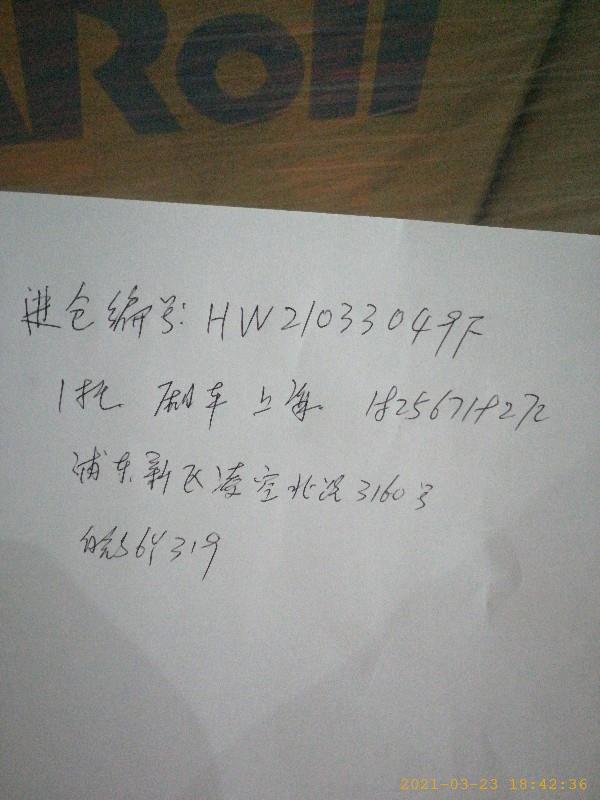 ARoll
进仓编号: HW21033049F
1托 刷车 上海 18256718272
浦东新区凌空北路3160号
皖S6Y319
2021-03-23 18:42:36